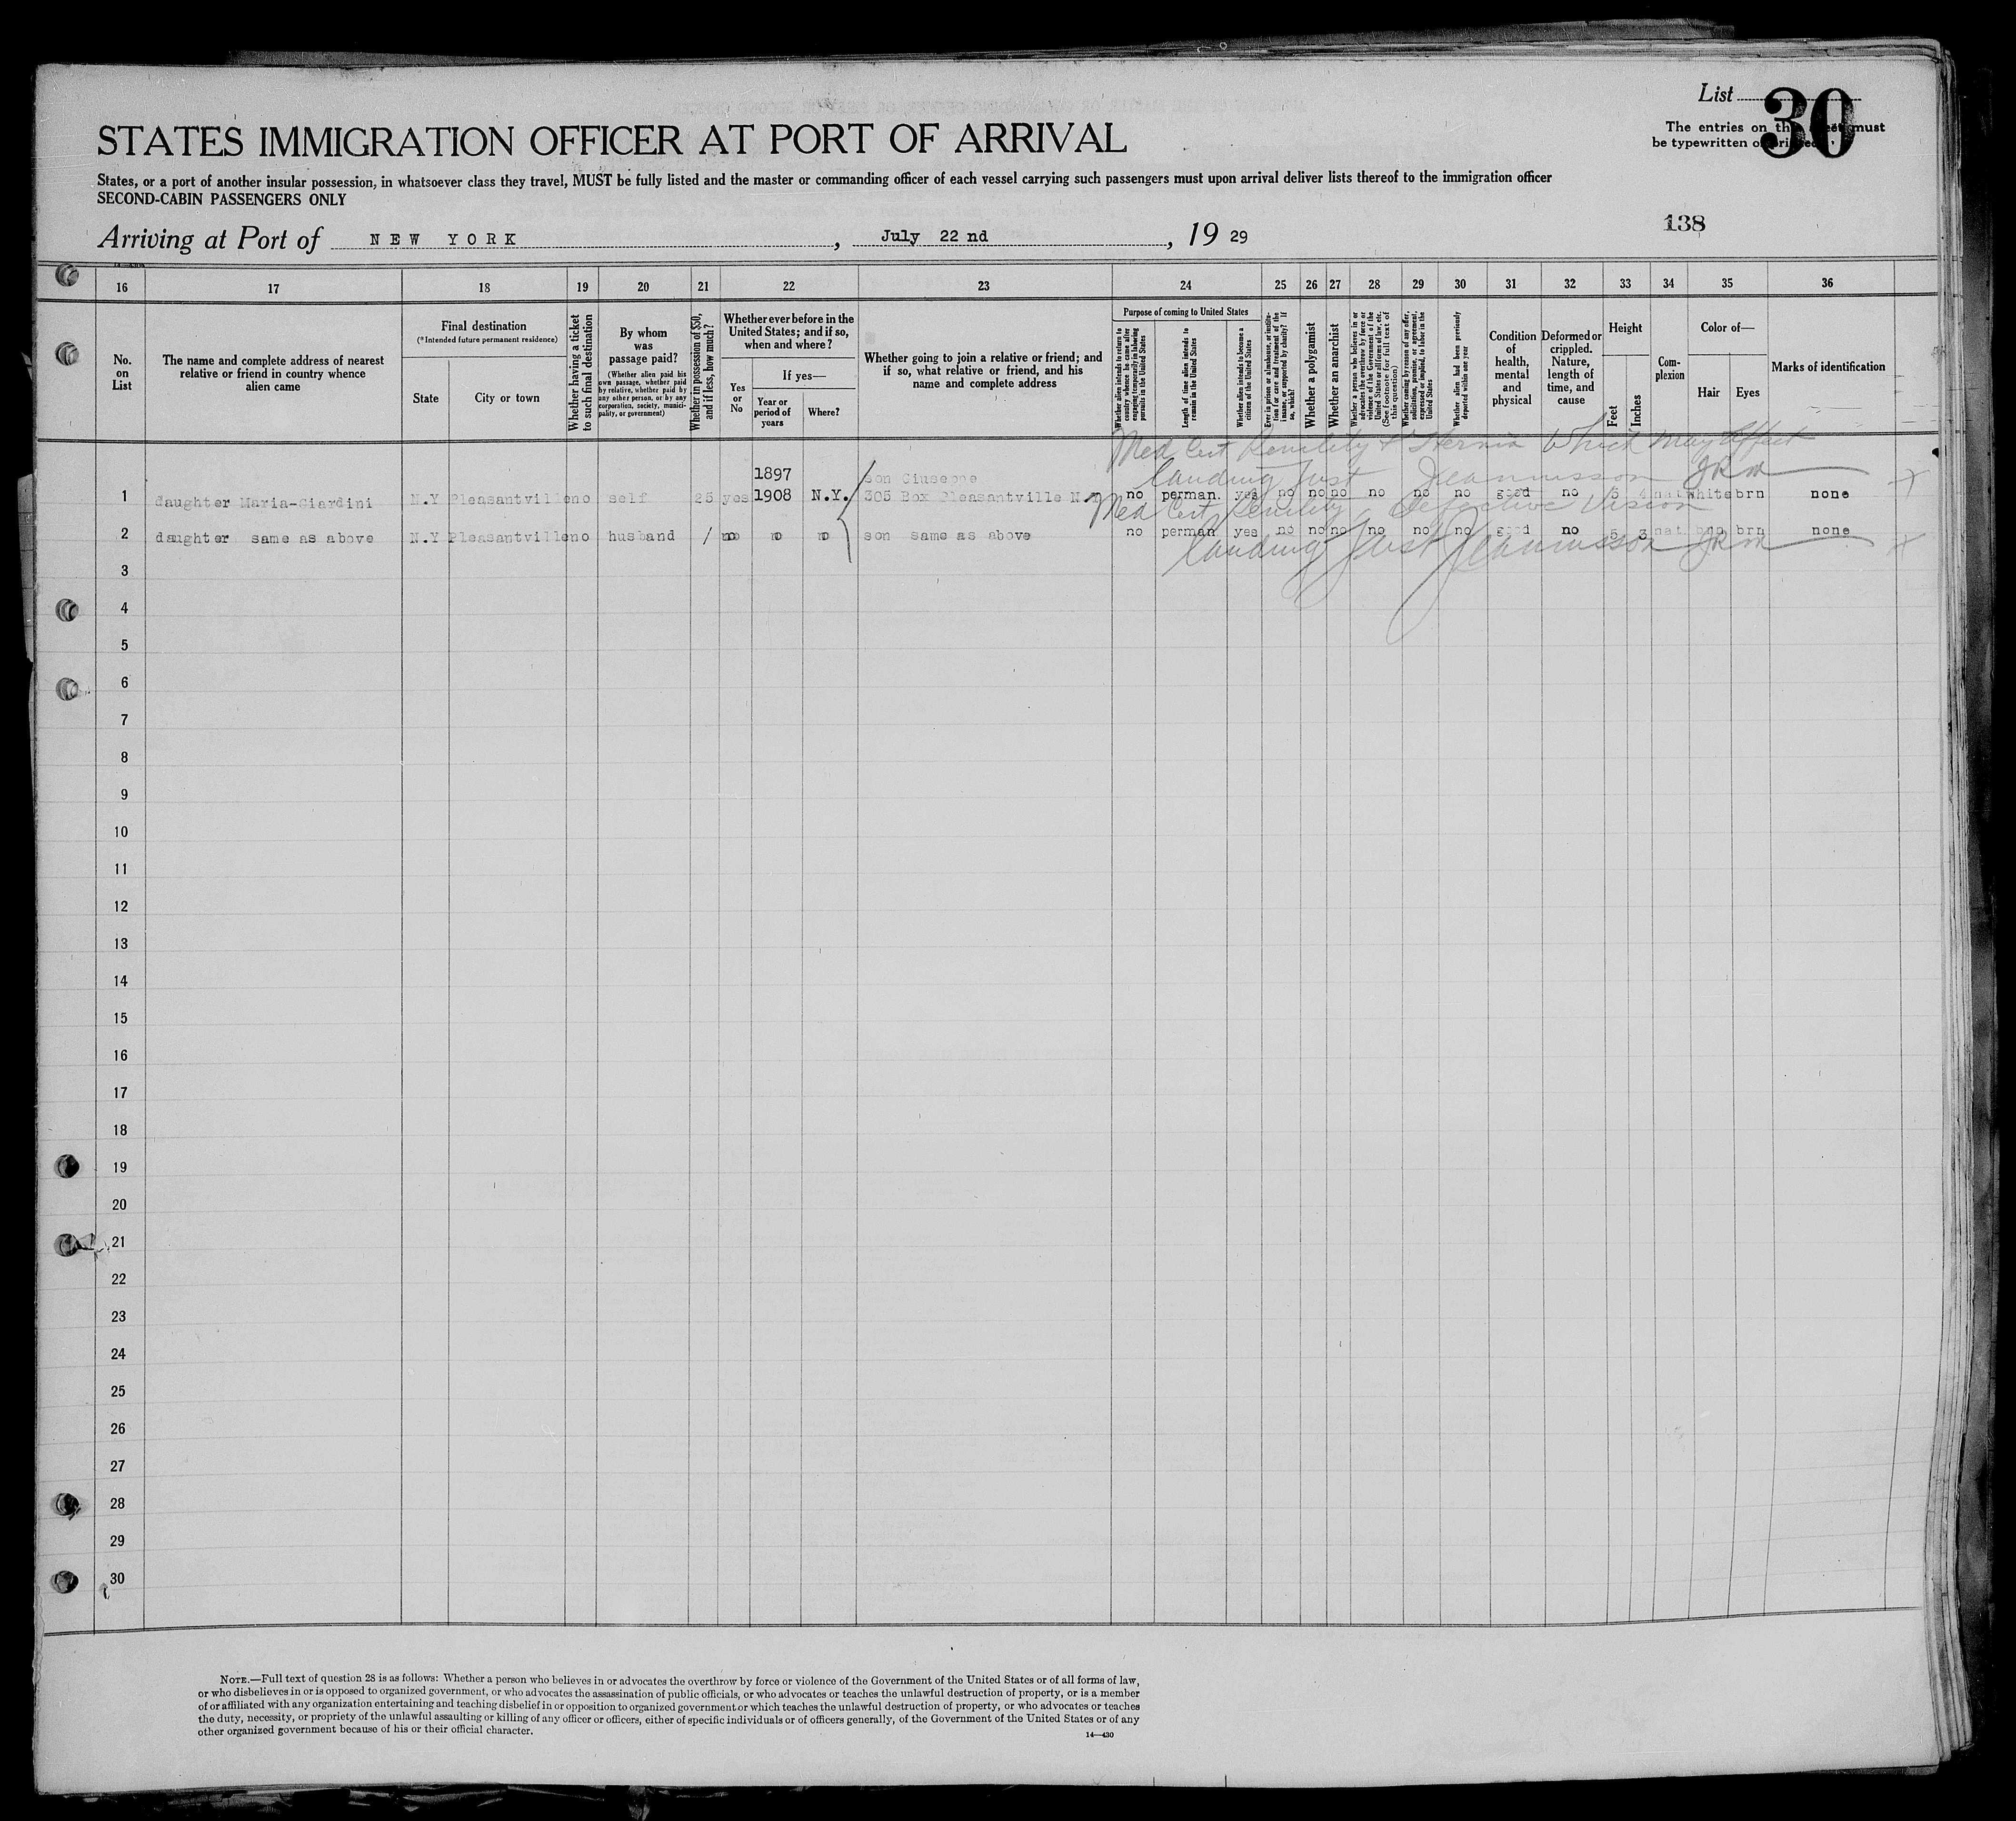 List 30
The entries on this sheet must
be typewritten or printed.
STATES IMMIGRATION OFFICER AT PORT OF ARRIVAL
States, or a port of another insular possession, in whatsoever class they travel, MUST be fully listed and the master or commanding officer of each vessel carrying such passengers must upon arrival deliver lists thereof to the immigration officer
SECOND-CABIN PASSENGERS ONLY
138
Arriving at Port of NEW YORK, July 22 nd, 19 29
16 17 18 19 20 21 22 23 24 25 26 27 28 29 30 31 32 33 34 35 36
No. on List
The name and complete address of nearest relative or friend in country whence alien came
Final destination
(*Intended future permanent residence)
State
City or town
Whether having a ticket to such final destination
By whom was passage paid?
(Whether alien paid his own passage, whether paid by relative, whether paid by any other person, or by any corporation, society, municipality, or government)
Whether in possession of $50, and if less, how much?
Whether ever before in the United States; and if so, when and where?
Yes or No
If yes—
Year or period of years
Where?
Whether going to join a relative or friend; and if so, what relative or friend, and his name and complete address
Purpose of coming to United States
Whether alien intends to return to country whence he came after engaging temporarily in laboring pursuits in the United States
Length of time alien intends to remain in the United States
Whether alien intends to become a citizen of the United States
Ever in prison or almshouse, or institution for care and treatment of the insane, or supported by charity? If so, which?
Whether a polygamist
Whether an anarchist
Whether a person who believes in or advocates the overthrow by force or violence of the Government of the United States or all forms of law, etc. (See footnote for full text of this question)
Whether coming by reason of any offer, solicitation, promise, or agreement, expressed or implied, to labor in the United States
Whether alien had been previously deported within one year
Condition of health, mental and physical
Deformed or crippled. Nature, length of time, and cause
Height
Feet
Inches
Complexion
Color of—
Hair
Eyes
Marks of identification
Med Cert Senility & Hernia Which may Affect
Landing Just JRM
1 daughter Maria-Giardini N.Y Pleasantville no self 25 yes 1897 1908 N.Y. son Giuseppe 305 Box Pleasantville N.Y no perman. yes no no no no no no good no 5 4 nat white brn none
Med Cert Senility Defective Vision
2 daughter same as above N.Y Pleasantville no husband / no no no son same as above no perman yes no no no no no no good no 5 3 nat brn brn none
Landing Just JRM
3
4
5
6
7
8
9
10
11
12
13
14
15
16
17
18
19
20
21
22
23
24
25
26
27
28
29
30
NOTE.—Full text of question 28 is as follows: Whether a person who believes in or advocates the overthrow by force or violence of the Government of the United States or of all forms of law,
or who disbelieves in or is opposed to organized government, or who advocates the assassination of public officials, or who advocates or teaches the unlawful destruction of property, or is a member
of or affiliated with any organization entertaining and teaching disbelief in or opposition to organized government or which teaches the unlawful destruction of property, or who advocates or teaches
the duty, necessity, or propriety of the unlawful assaulting or killing of any officer or officers, either of specific individuals or of officers generally, of the Government of the United States or of any
other organized government because of his or their official character.
14—430